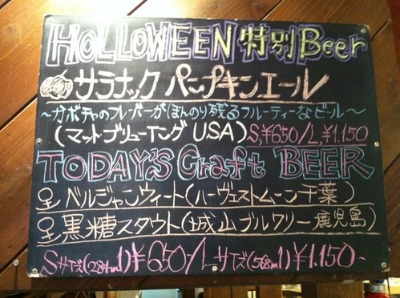 HOLLOWEEN 特別Beer
サラナック パンプキンエール
〜カボチャのフレーバーがほんのり残るフルーティーなビール〜
(マットブリューイング USA) S,¥650/L,¥1,150
TODAY'S Craft BEER
ベルジャンウィート(ハーヴェストムーン千葉)
黒糖スタウト(城山ブルワリー鹿児島)
Sサイズ(284ml)¥650/Lサイズ(568ml)¥1,150-